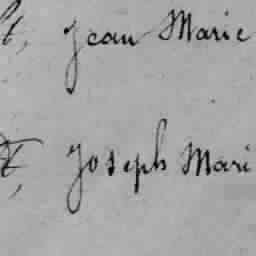 t, Jean Marie
t, Joseph Mari